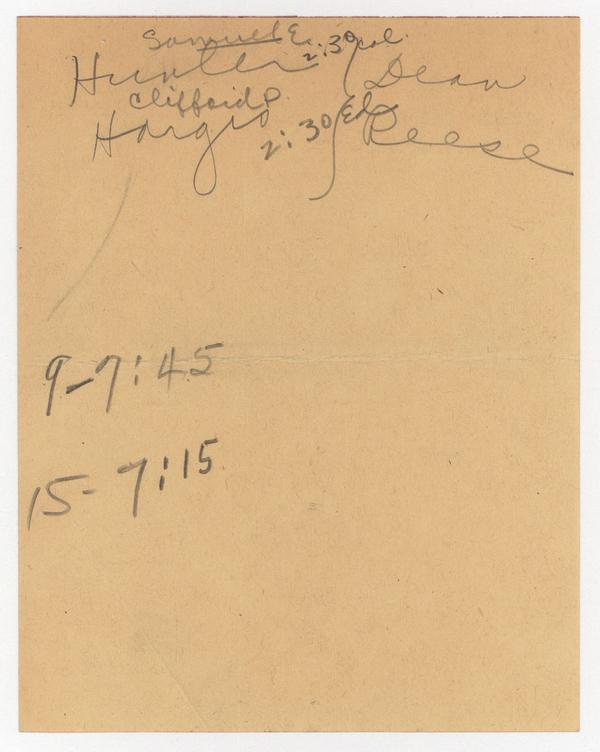 Samuel E. 2:30 col.
Hunter Dean
Clifford P. Ed
Hargro 2:30 Reese
9-7:45
15-7:15